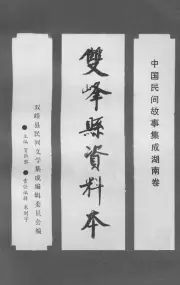 中国民间故事集成湖南卷
雙峰縣資料本
双峰县民间文学集成编辑委员会编
●主编
●责任编辑